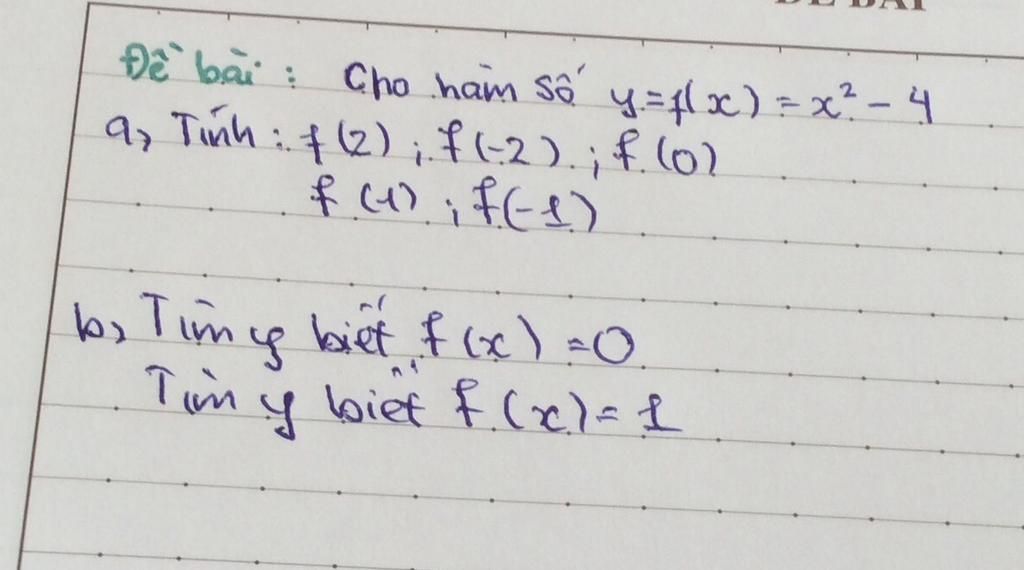 Đề bài : Cho hàm số y = f(x) = x² - 4
a, Tính : f(2) ; f(-2) ; f(0)
f(1) ; f(-1)
b, Tìm y biết f(x) = 0
Tìm y biết f(x) = 1